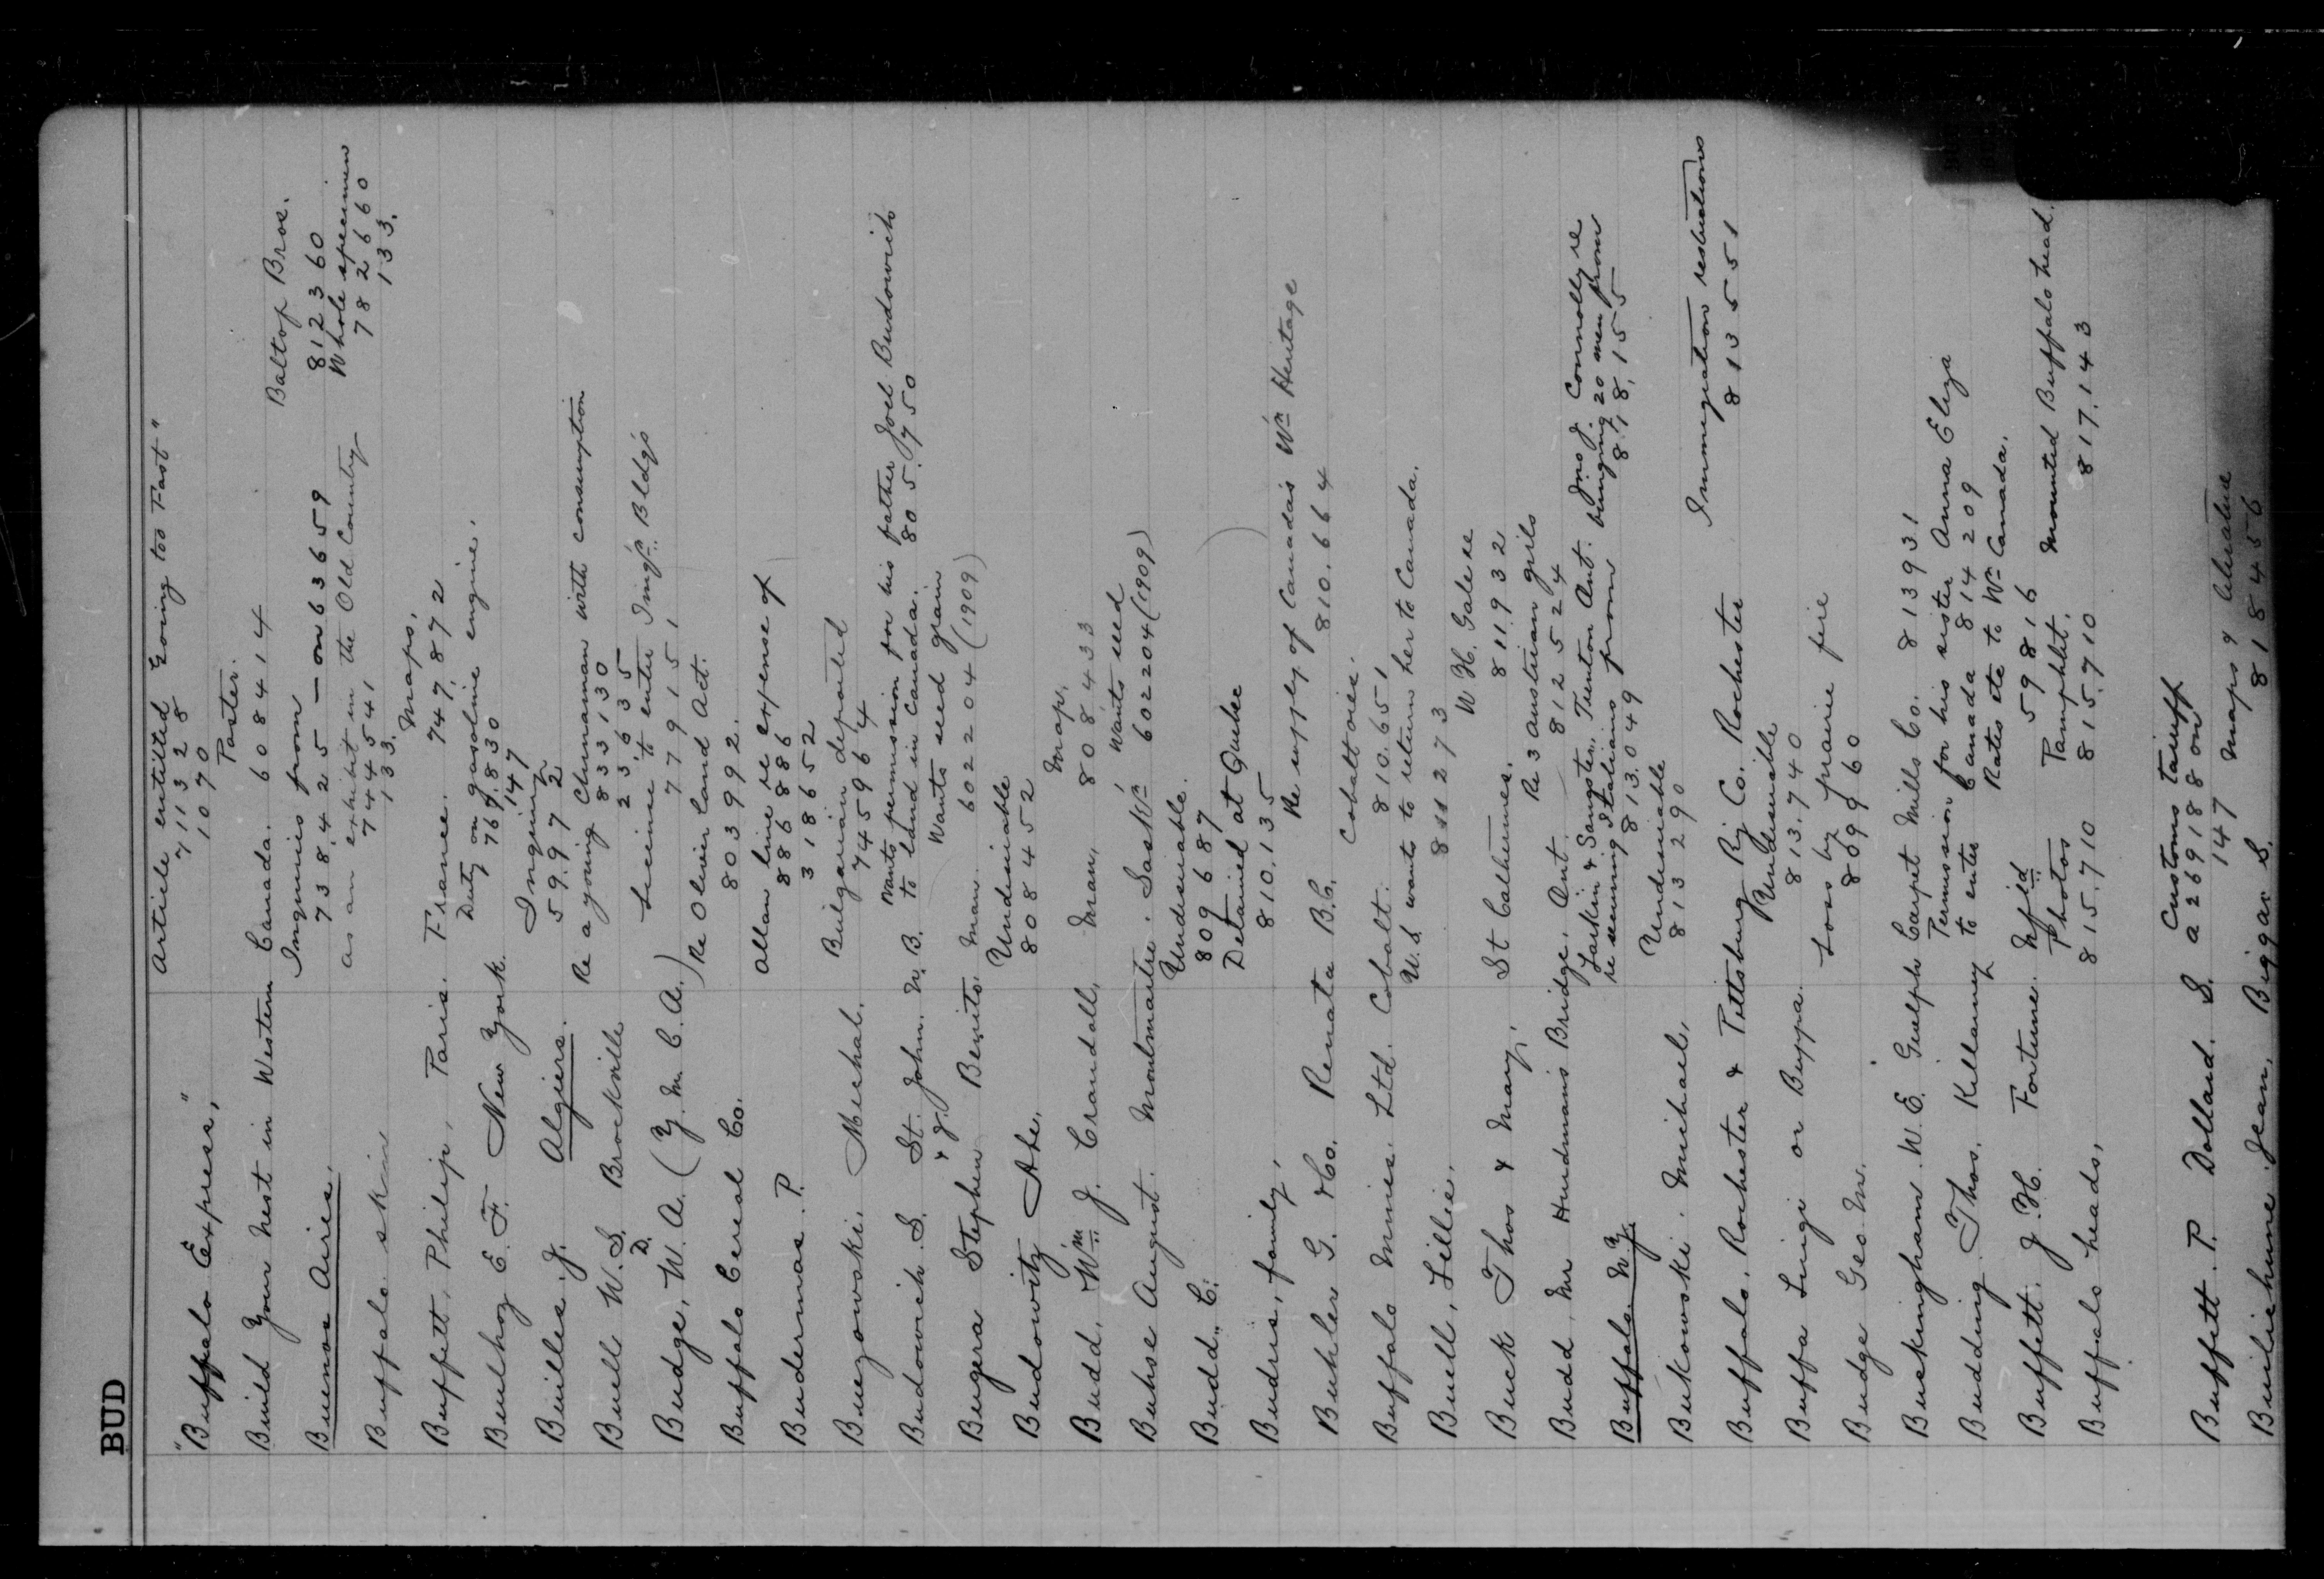 BUD
"Buffalo Express," Article entitled "Going too Fast"
711328
1070
Poster.
Build Your Nest in Western Canada. 608414
Baltop Bros.
Buenos Aires. Inquiries from
738,425 — on 63659 812360
Buffalo skin as an exhibit in the Old Country Whole specimen
744541 782660
133. 133.
Buffett, Philip, Paris. France. Maps.
747,872
Buulhoz E. F. New York. Duty on gasoline engine.
767.830
147
Buillis J. Algiers. Inquiring
59972
Buell W. S. Brockville Re a young Chinaman with consumption
833130
23635
Budge, W. D. A. (Y. M. C. A.) License to enter Img'n Bldgs
779151
Re Olivier Land Act.
803992.
Buffalo Cereal Co.
Budermas. P. Allan line re expense of
886886
318652
Buezowski, Meehal. Bulgarian deported
745964
Budowich. S. St. John. N. B. Wants permission for his father Joel Budowich
to land in Canada. 805.750
Bugera Stephen & J. Benito. Man. Wants seed grain
602204 (1909)
Budowitz Abe. Undesirable
808452
Budd, Wm J. Crandall, Man, Map.
808433
Buhse August. Montmartre. Sask'n Wants seed
602204 (1909)
Budd, C. Undesirable.
809687
Budris, family, Detained at Quebec
810.135
Buhler G. & Co. Renata B.C. Re supply of Canadas Wm Heritage
810.664
Buffalo Mines. Ltd. Cobalt. Cobalt ores.
810.651
Buell, Lillie, U.S wants to return her to Canada.
811273
Buck Thos & Mary, St Catherines. W H. Gale re
811932
Budd, Mr Hurdmans Bridge, Ont. Re 3 Austrian girls
812524
Buffalo. N.Y. Larkin & Sangster, Trenton Ont. Jno J. Connolly re
re securing Italians from bringing 20 men from
813.049 818,155
Bukowski. Michael, Undesirable
813290
Buffalo, Rochester & Pittsburg Ry Co. Rochester Immigration restrictions
813551
Buffa Luigi or Buppa. Undesirable
813,740
Budge Geo M. Loss by prairie fire
809960
Buckingham. W. E. Guelph Carpet Mills Co. 813931
Budding. Thos. Killarney Permission for his sister Anna Eliza
to enter Canada 814209
Buffett. J. H. Fortune. Nfld Rates etc to Wn Canada.
59816
Buffalo heads, Photos Pamphlet. Mounted Buffalo head.
815.710 815.710 817.143
Buffett. P. Dollard. S. Customs tariff
a 269188 on
147
Jean, Bigar S. Maps &
818456